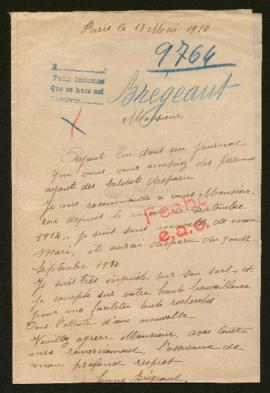 Paris le 13 Mai 1910
9764
Brégeaut
Monsieur
Ayant lu dans un journal
que vous vous occupiez des personnes
ayant des soldats disparus
je me recommande a vous Monsieur
car depuis le Septembre
1914. je suis sans nouvelle de mon
Mari, il aurai disparu du
Septembre 1914
Je suis très inquiète sur son sort et
je compte sur votre haute bienveillance
pour me faciliter toute recherches
Dans l'attente d'une nouvelle
Veuillez agréer Monsieur, avec tout
mes remerciement, l'assurance de
mon profond respect
Feahc
e.a.c.